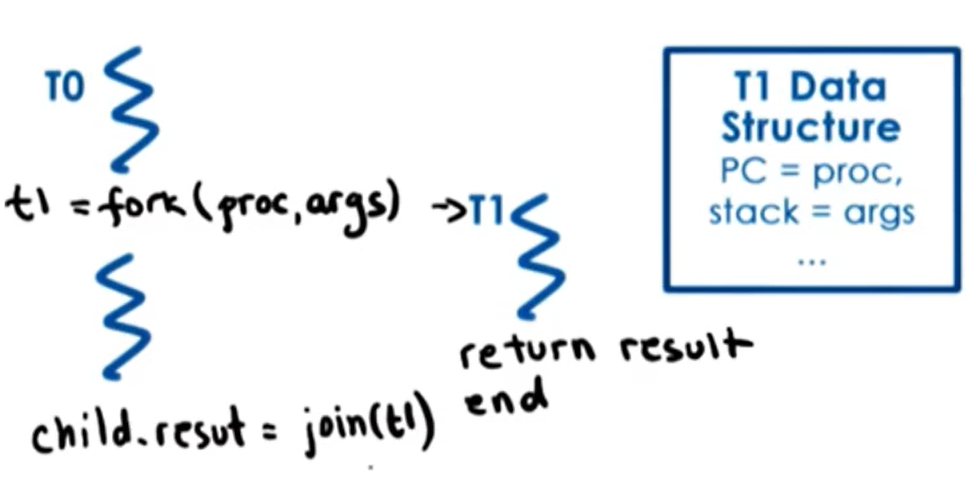 T0
t1 = fork(proc, args) → T1
return result
end
child.resut = join(t1)
T1 Data
Structure
PC = proc,
stack = args
...